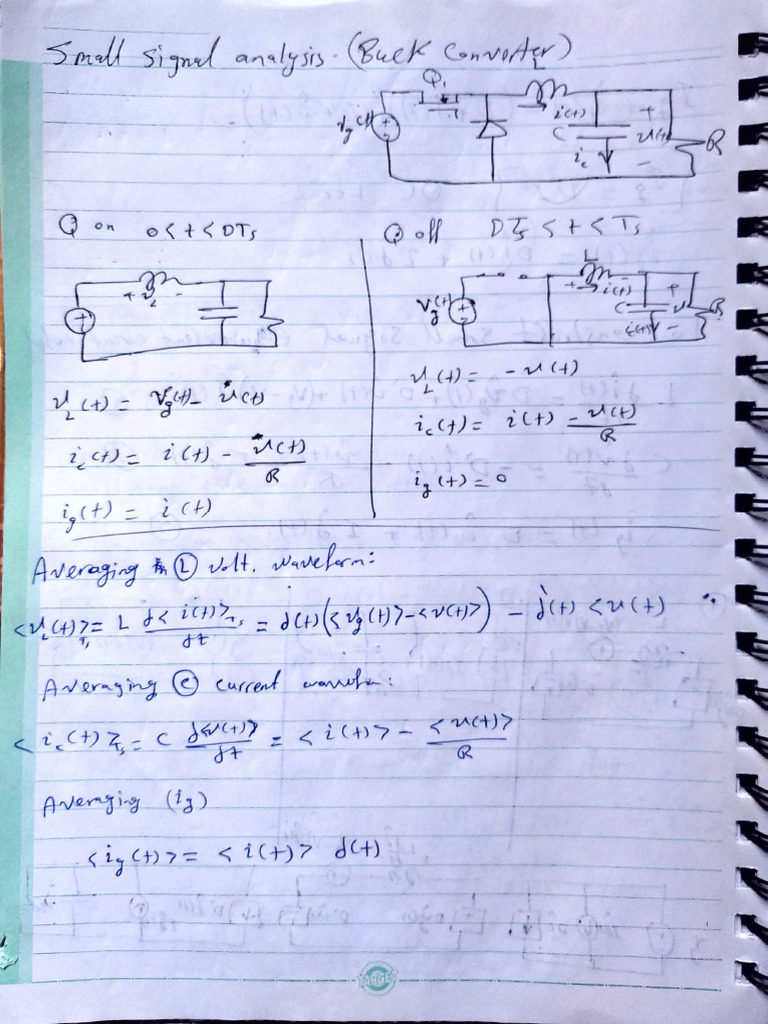 Small Signal analysis. (Buck Converter)
Q₁ L
v_g(t) + - i(t) C i_c + v(t) - R
Q on 0 < t < DTs
Q off DTs < t < Ts
+ v_L -
v_g(t) + - L + i(t) - C i_c(t) + v - R
v_L(t) = v_g(t) - v(t)
i_c(t) = i(t) - v(t)/R
i_g(t) = i(t)
v_L(t) = - v(t)
i_c(t) = i(t) - v(t)/R
i_g(t) = 0
Averaging Ⓛ volt. waveform:
<v_L(t)>_Ts = L d<i(t)>_Ts/dt = d(t)(<v_g(t)> - <v(t)>) - d'(t) <v(t)
Averaging Ⓒ current wavefor:
<i_c(t)>_Ts = C d<v(t)>/dt = <i(t)> - <v(t)>/R
Averaging (i_g)
<i_g(t)> = <i(t)> d(t)
TARGET